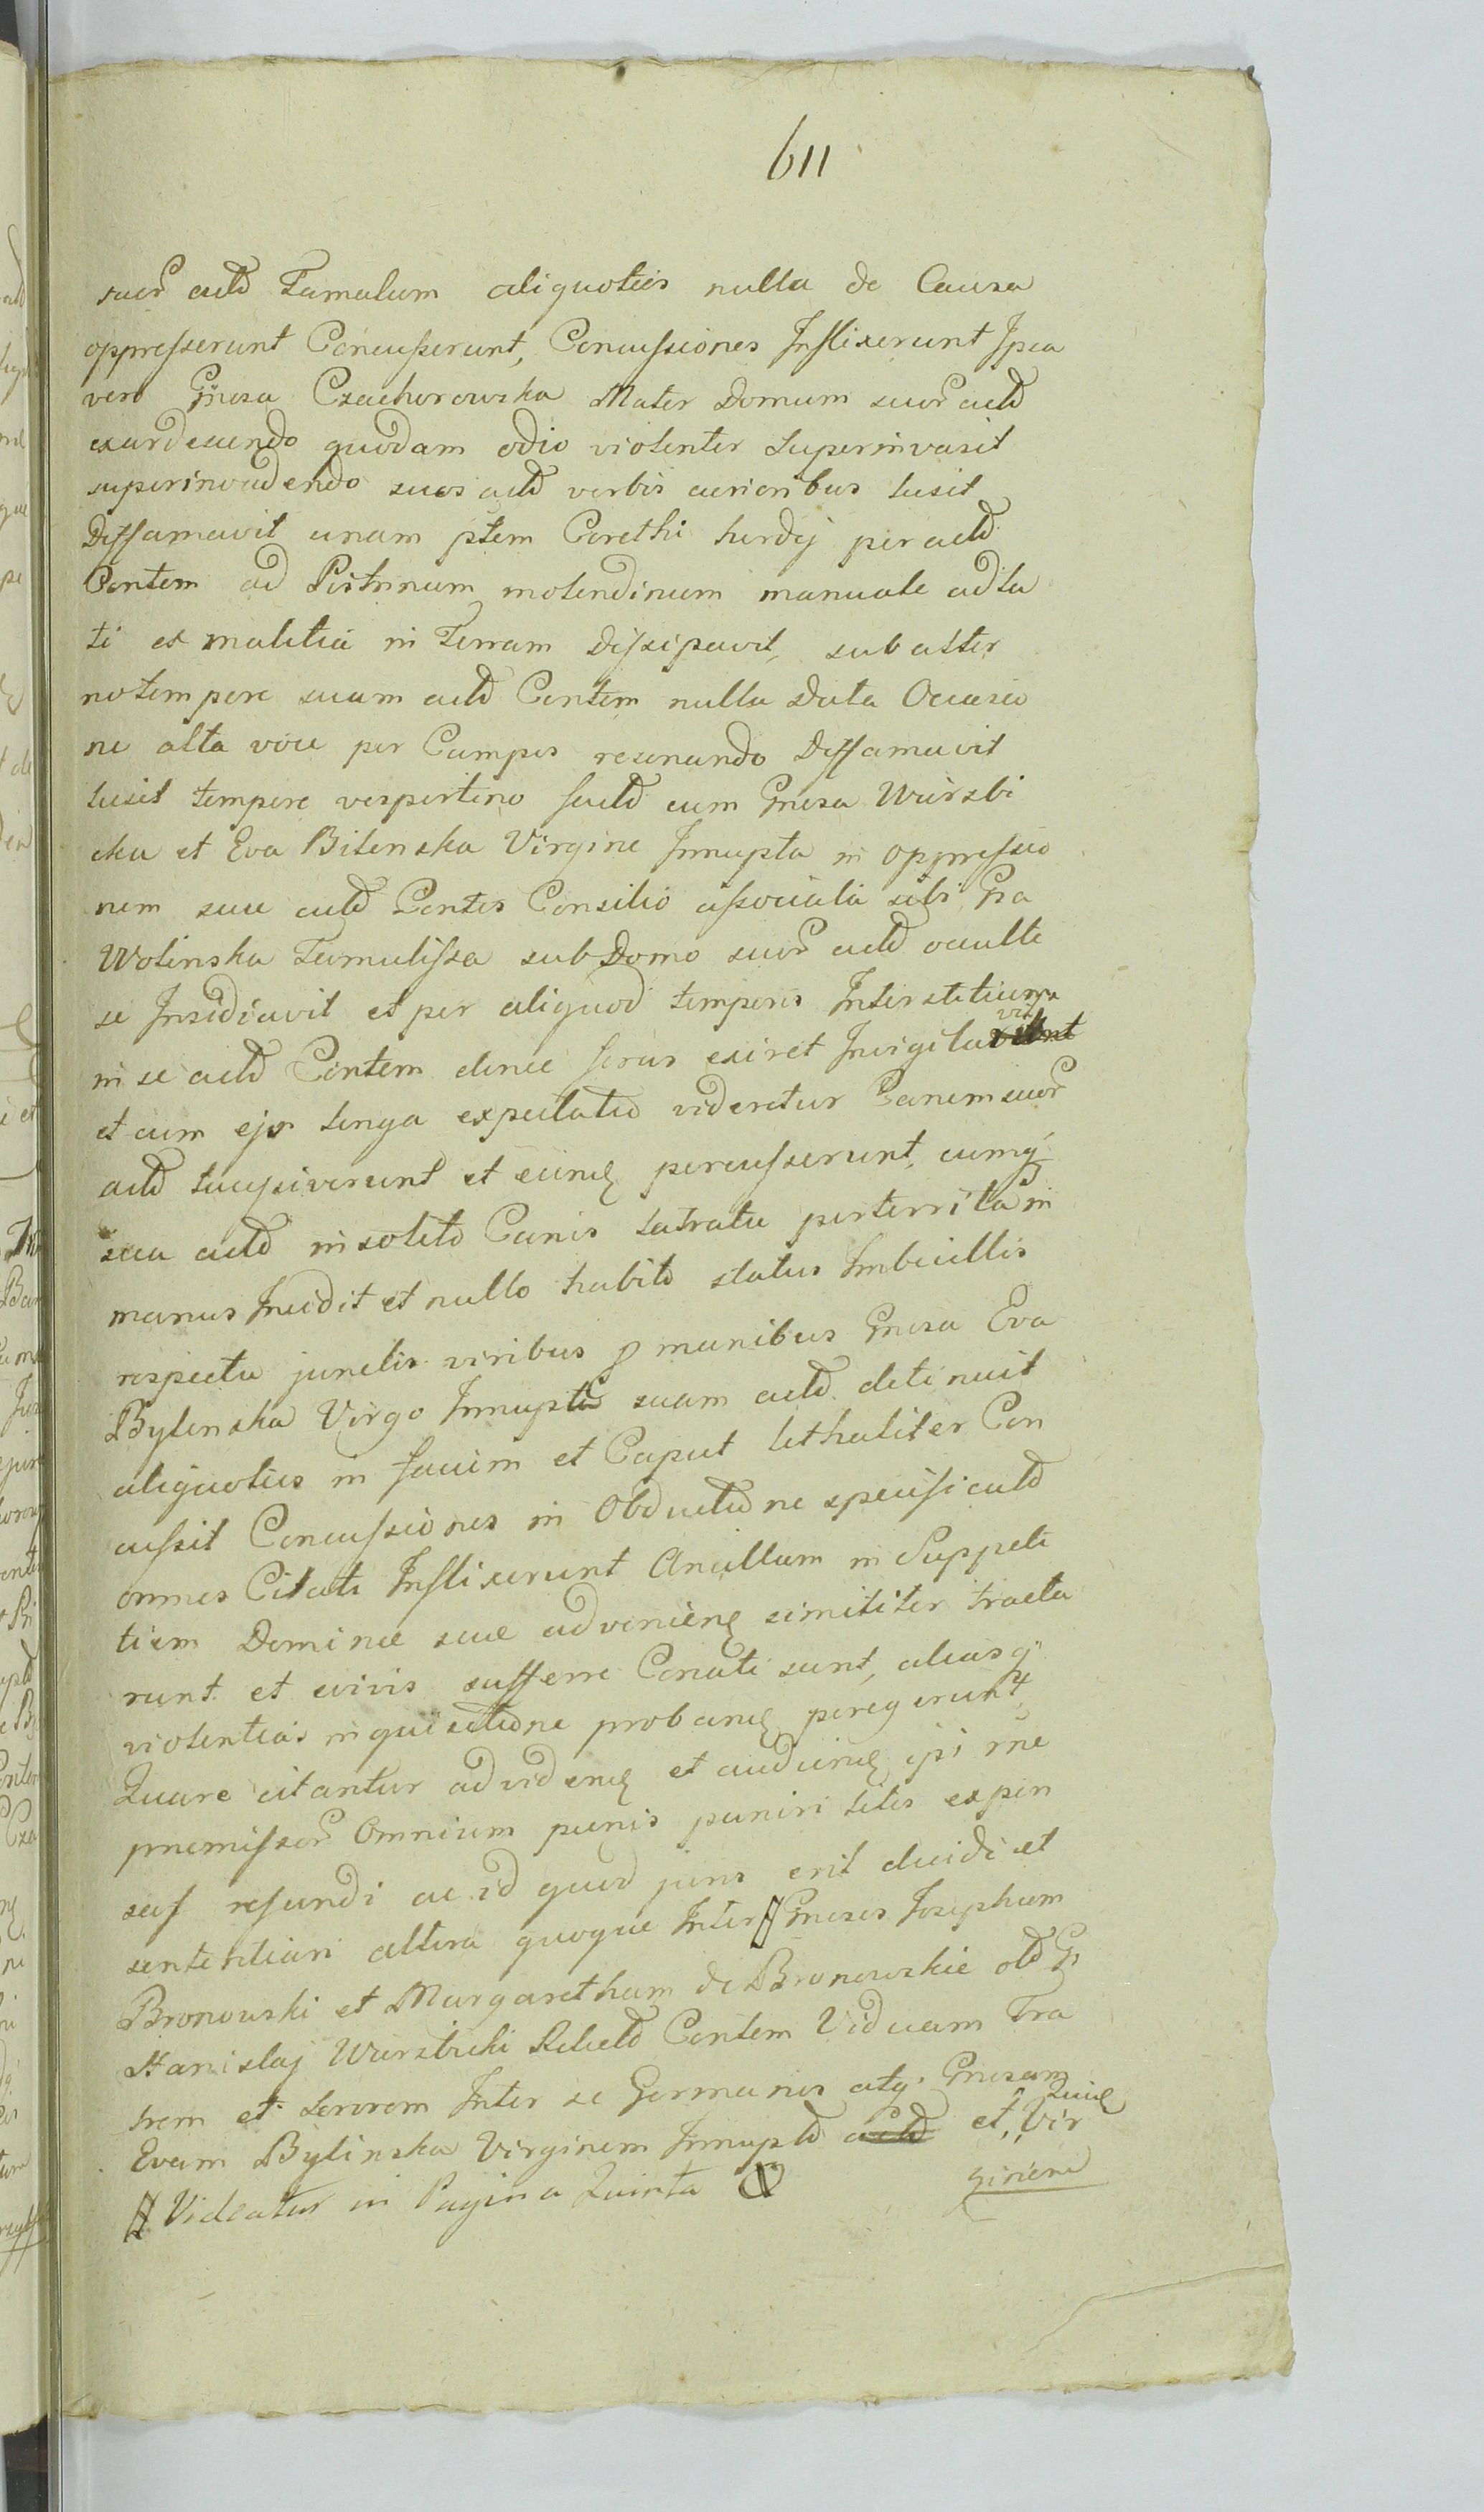 611
suor actd Famulum aliquoties nulla de Causa
oppresserunt Concusserunt, Concussiones Inflixerunt Ipsa
vero Gnosa Czachorowska Mater Domum suor actd
exardescendo quodam odio violenter superinvasit
superinvadendo suos actd verbis acrioribus lusit
Diffamavit unam ptem Corethi hordej per actd
Contem ad Pistrinum molendinum manuale adla
ti ex malitia in Terram dissipavit, sub alter
notempore suam actd Contem nulla data Occasio
ne alta voce per Campos resonando Diffamavit
lusit tempore vespertino factd cum Gnosa Wierzbi
cka et Eva Bilenska Virgine Innupta in oppressio
nem suae actd Contis Consilio associata sibi Gsa
Wolinska Famulissa sub Domo suor actd occulte
se Insidiavit et per aliquod temporis Interstitium
in se actd Contem donec foras exiret Invigilavit
et cum ejs longa expectatio videretur Canem suor
actd succiverunt et eund percusserunt, cumq
sua actd insolito Canis latratu perterrita in
manus Incidit et nullo habito status Imbecillis
respectu junctis viribus p manibus Gnosa Eva
Bylenska Virgo Innupta suam actd detinuit
aliquoties in faciem et Caput lethaliter Con
cussit Concussiones in Obductione specificatd
omnes Citati Inflixerunt Ancillam in Suppeti
tiem Dominae suae advenien similiter tracta
runt et vivis aufferre Conati sunt, aliasq
violentias inquisitione proband peregerunt,
Quare citantur ad vidend et audiend ipi rne
praemissor Omnium penis puniri litis expen
sas refundi ac id quod juris erit decidi et
sententiari altera quoque Inter Gnosos Josephum
Bronowski et Margaretham de Bronowskie old G
Stanislaj Wierzbicki Relictd Contem Viduam Fra
trem et Sororem Inter se Germanos atq Gnosam
Evam Bylinska Virginem Innuptd actd et, Vir
giniend
Videatur in Pagina Quinta